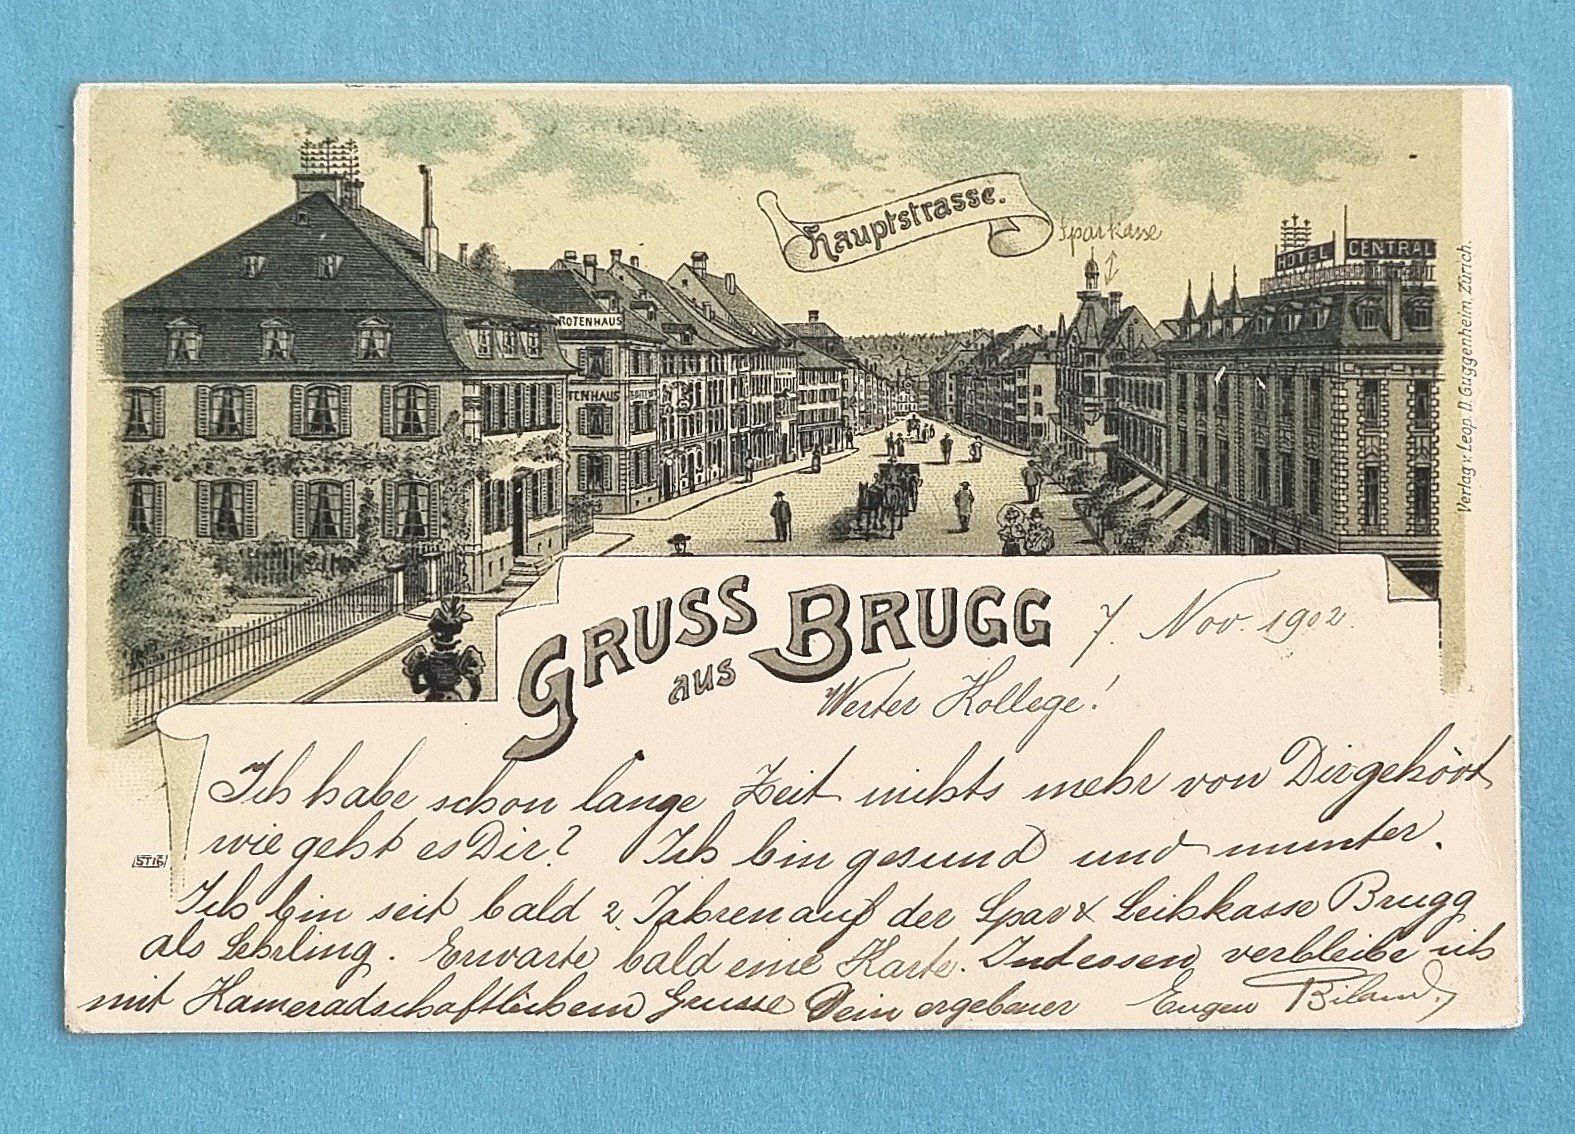 Hauptstrasse.
Sparkasse
HOTEL CENTRAL
ROTENHAUS
TENHAUS
Verlag: Leop. D. Guggenheim, Zürich.
GRUSS aus BRUGG
7. Nov. 1902.
Werter Kollege!
Ich habe schon lange Zeit nichts mehr von Dir gehört
wie geht es Dir? Ich bin gesund und munter.
5716
Ich bin seit bald 2 Jahren auf der Spar & Leihkasse Brugg
als Lehrling. Erwarte bald eine Karte. Indessen verbleibe ich
mit Kameradschaftlichem Grusse Dein ergebener Eugen